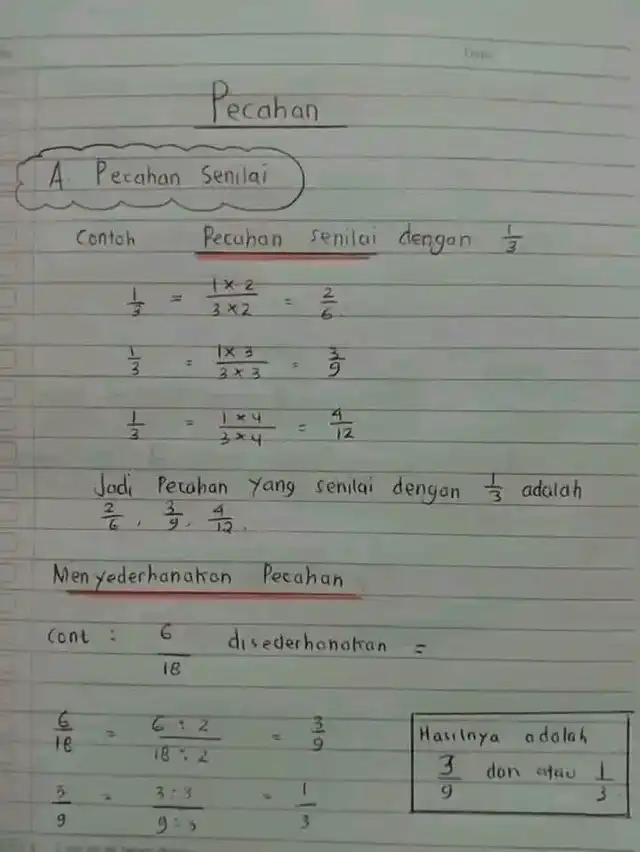 Pecahan
A. Pecahan Senilai
Contoh Pecahan senilai dengan 1/3
1/3 = 1 x 2 / 3 x 2 = 2/6
1/3 = 1 x 3 / 3 x 3 = 3/9
1/3 = 1 x 4 / 3 x 4 = 4/12
Jadi Pecahan yang senilai dengan 1/3 adalah
2/6, 3/9, 4/12.
Menyederhanakan Pecahan
Cont : 6/18 disederhanakan =
6/18 = 6 : 2 / 18 : 2 = 3/9
3/9 = 3 : 3 / 9 : 3 = 1/3
Hasilnya adalah
3/9 dan atau 1/3